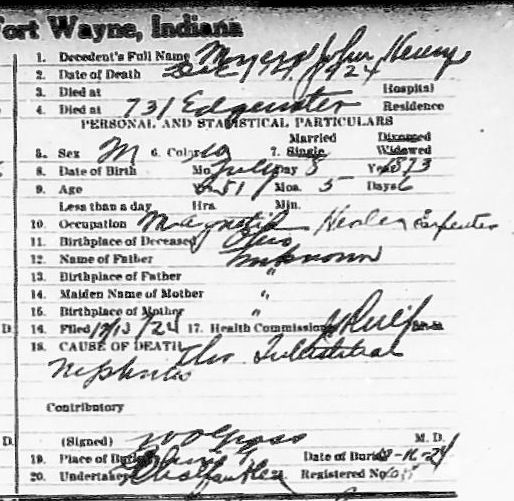 Fort Wayne, Indiana
1. Decedent's Full Name Myers John Henry
2. Date of Death Dec 14 1924
3. Died at Hospital
4. Died at 731 Edgewater Residence
PERSONAL AND STATISTICAL PARTICULARS
Married Divorced
5. Sex M 6. Color W 7. Single Widowed
8. Date of Birth Mo. July Day 8 Year 1873
9. Age Yrs. 51 Mos. 5 Days 6
Less than a day Hrs. Min.
10. Occupation Magnetic Healer Carpenter
11. Birthplace of Deceased Ohio
12. Name of Father Unknown
13. Birthplace of Father "
14. Maiden Name of Mother "
15. Birthplace of Mother "
16. Filed 12/15/24 17. Health Commissioner
18. CAUSE OF DEATH Chr Interstitial
Nephritis
Contributory
(Signed) W O Gross M. D.
19. Place of Burial Date of Burial 12-16-24
20. Undertaker Registered No.